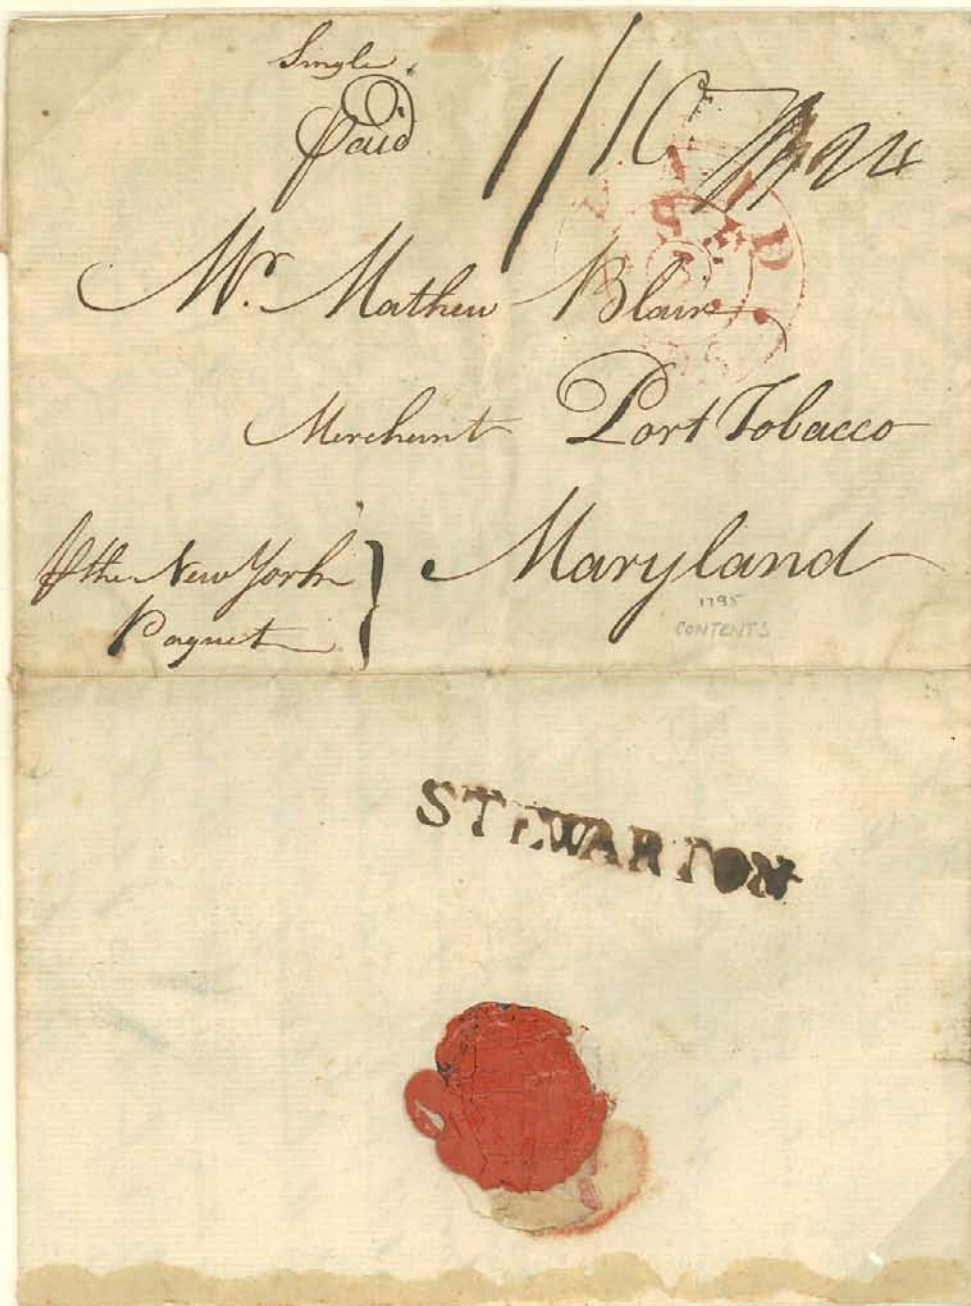 Single
Paid 1/10 24
Mr. Mathew Blair
Merchant Port Tobacco
Maryland
the New York
Paquet
1795
CONTENTS
STEWARTON